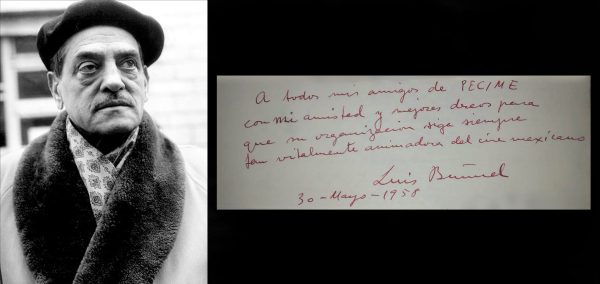 A todos mis amigos de PECIME
con mi amistad y mejores deseos para
que su organización siga siempre
tan vitalmente animadora del cine mexicano
Luis Buñuel
30-Mayo-1958